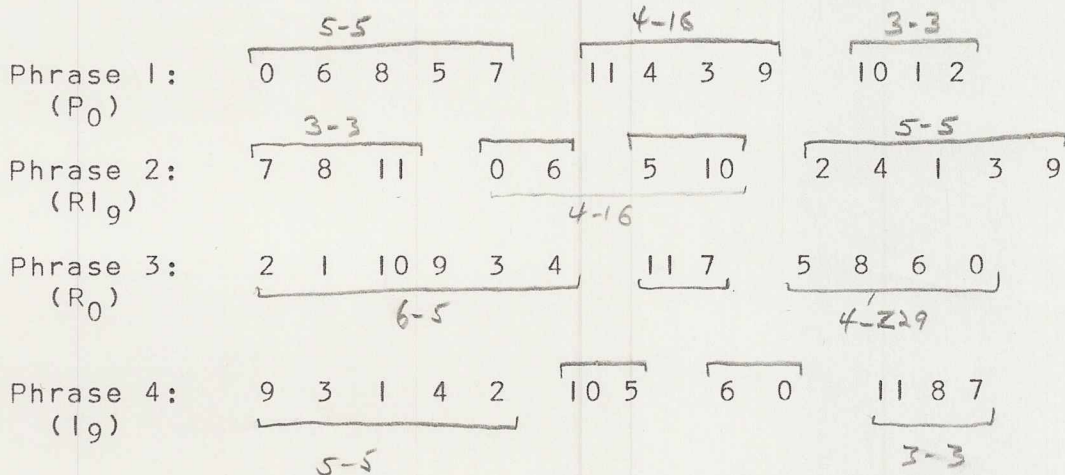 5-5 4-16 3-3
Phrase 1: 0 6 8 5 7 11 4 3 9 10 1 2
(P0)
3-3 5-5
Phrase 2: 7 8 11 0 6 5 10 2 4 1 3 9
(RI9)
4-16
Phrase 3: 2 1 10 9 3 4 11 7 5 8 6 0
(R0)
6-5 4-Z29
Phrase 4: 9 3 1 4 2 10 5 6 0 11 8 7
(I9)
5-5 3-3